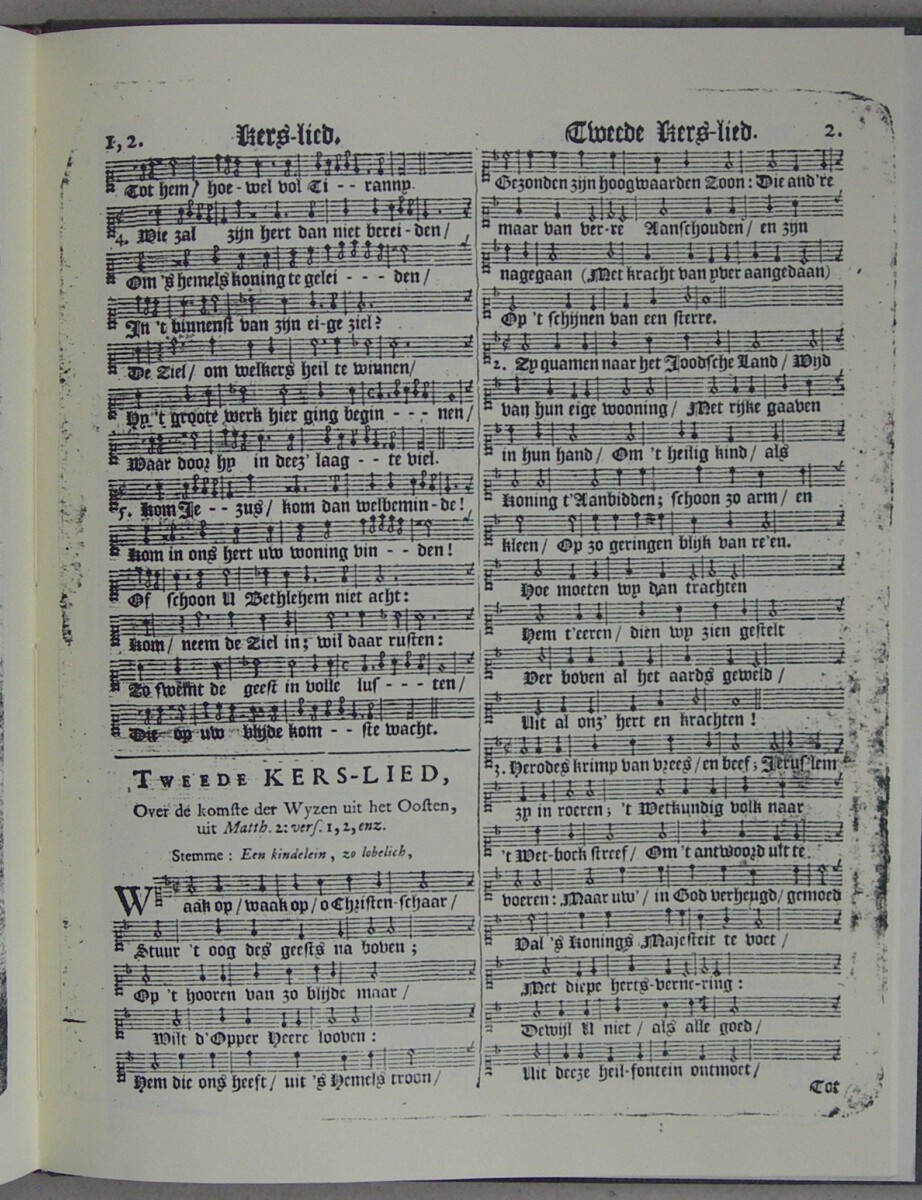 1, 2. Kers-lied.
Tot hem/ hoe-wel vol Ti - - ranny.
4. Wie zal zijn hert dan niet berei-den/
Om 's hemels koning te gelei - - - den/
In 't binnenst van zijn ei-ge ziel?
De Ziel/ om welkers heil te winnen/
Hy 't groote werk hier ging begin - - - nen/
Waar door hy in deez' laag - - te viel.
5. Kom Je - - zus/ kom dan welbemin-de!
Kom in ons hert uw woning vin - - den!
Of schoon U Bethlehem niet acht:
Kom/ neem de Ziel in; wil daar rusten:
Zo swemt de geest in volle lus - - - ten/
Die op uw blijde kom - - ste wacht.
TWEEDE KERS-LIED,
Over de komste der Wyzen uit het Oosten,
uit Matth. 2: vers. 1, 2, enz.
Stemme: Een kindelein, zo lobelich,
Waak op/ waak op/ o Christen-schaar/
Stuur 't oog des geests na boven;
Op 't hooren van zo blijde maar/
Wilt d'Opper Heere looven:
Hem die ons heeft/ uit 's Hemels troon/
Tweede Kers-lied. 2.
Gezonden zijn hoogwaarden Zoon: Die and're
maar van ver-re Aanschouden/ en zijn
nagegaan (Met kracht van yver aangedaan)
Op 't schijnen van een sterre.
2. Zy quamen naar het Joodsche Land/ Wijd
van hun eige wooning/ Met rijke gaaven
in hun hand/ Om 't heilig kind/ als
Koning t'Aanbidden; schoon zo arm/ en
kleen/ Op zo geringen blijk van re'en.
Hoe moeten wy dan trachten
Hem t'eeren/ dien wy zien gestelt
Ver boven al het aards geweld/
Uit al onz' hert en krachten!
3. Herodes krimp van vrees/ en beef; Jerus'lem
zy in roeren; 't Wetkundig volk naar
't Wet-boek streef/ Om 't antwoord uit te
voeren: Maar uw'/ in God verheugd/ gemoed
Val 's Konings Majesteit te voet/
Met diepe herts-verne-ring:
Dewijl U niet/ als alle goed/
Uit deeze heil-fontein ontmoet/
Tot